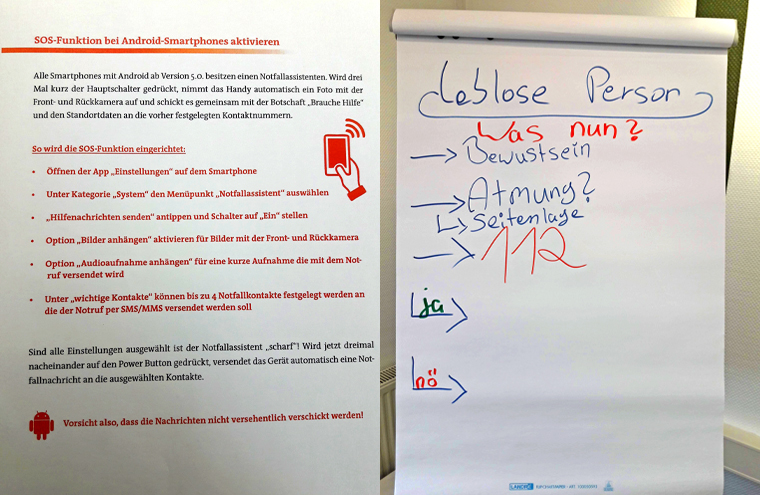 SOS-Funktion bei Android-Smartphones aktivieren
Alle Smartphones mit Android ab Version 5.0. besitzen einen Notfallassistenten. Wird drei
Mal kurz der Hauptschalter gedrückt, nimmt das Handy automatisch ein Foto mit der
Front- und Rückkamera auf und schickt es gemeinsam mit der Botschaft „Brauche Hilfe“
und den Standortdaten an die vorher festgelegten Kontaktnummern.
So wird die SOS-Funktion eingerichtet:
• Öffnen der App „Einstellungen“ auf dem Smartphone
• Unter Kategorie „System“ den Menüpunkt „Notfallassistent“ auswählen
• „Hilfenachrichten senden“ antippen und Schalter auf „Ein“ stellen
• Option „Bilder anhängen“ aktivieren für Bilder mit der Front- und Rückkamera
• Option „Audioaufnahme anhängen“ für eine kurze Aufnahme die mit dem Not-
ruf versendet wird
• Unter „wichtige Kontakte“ können bis zu 4 Notfallkontakte festgelegt werden an
die der Notruf per SMS/MMS versendet werden soll
Sind alle Einstellungen ausgewählt ist der Notfallassistent „scharf“! Wird jetzt dreimal
nacheinander auf den Power Button gedrückt, versendet das Gerät automatisch eine Not-
fallnachricht an die ausgewählten Kontakte.
Vorsicht also, dass die Nachrichten nicht versehentlich verschickt werden!
Leblose Person
Was nun?
Bewustsein
Atmung?
Seitenlage
112
ja
nö